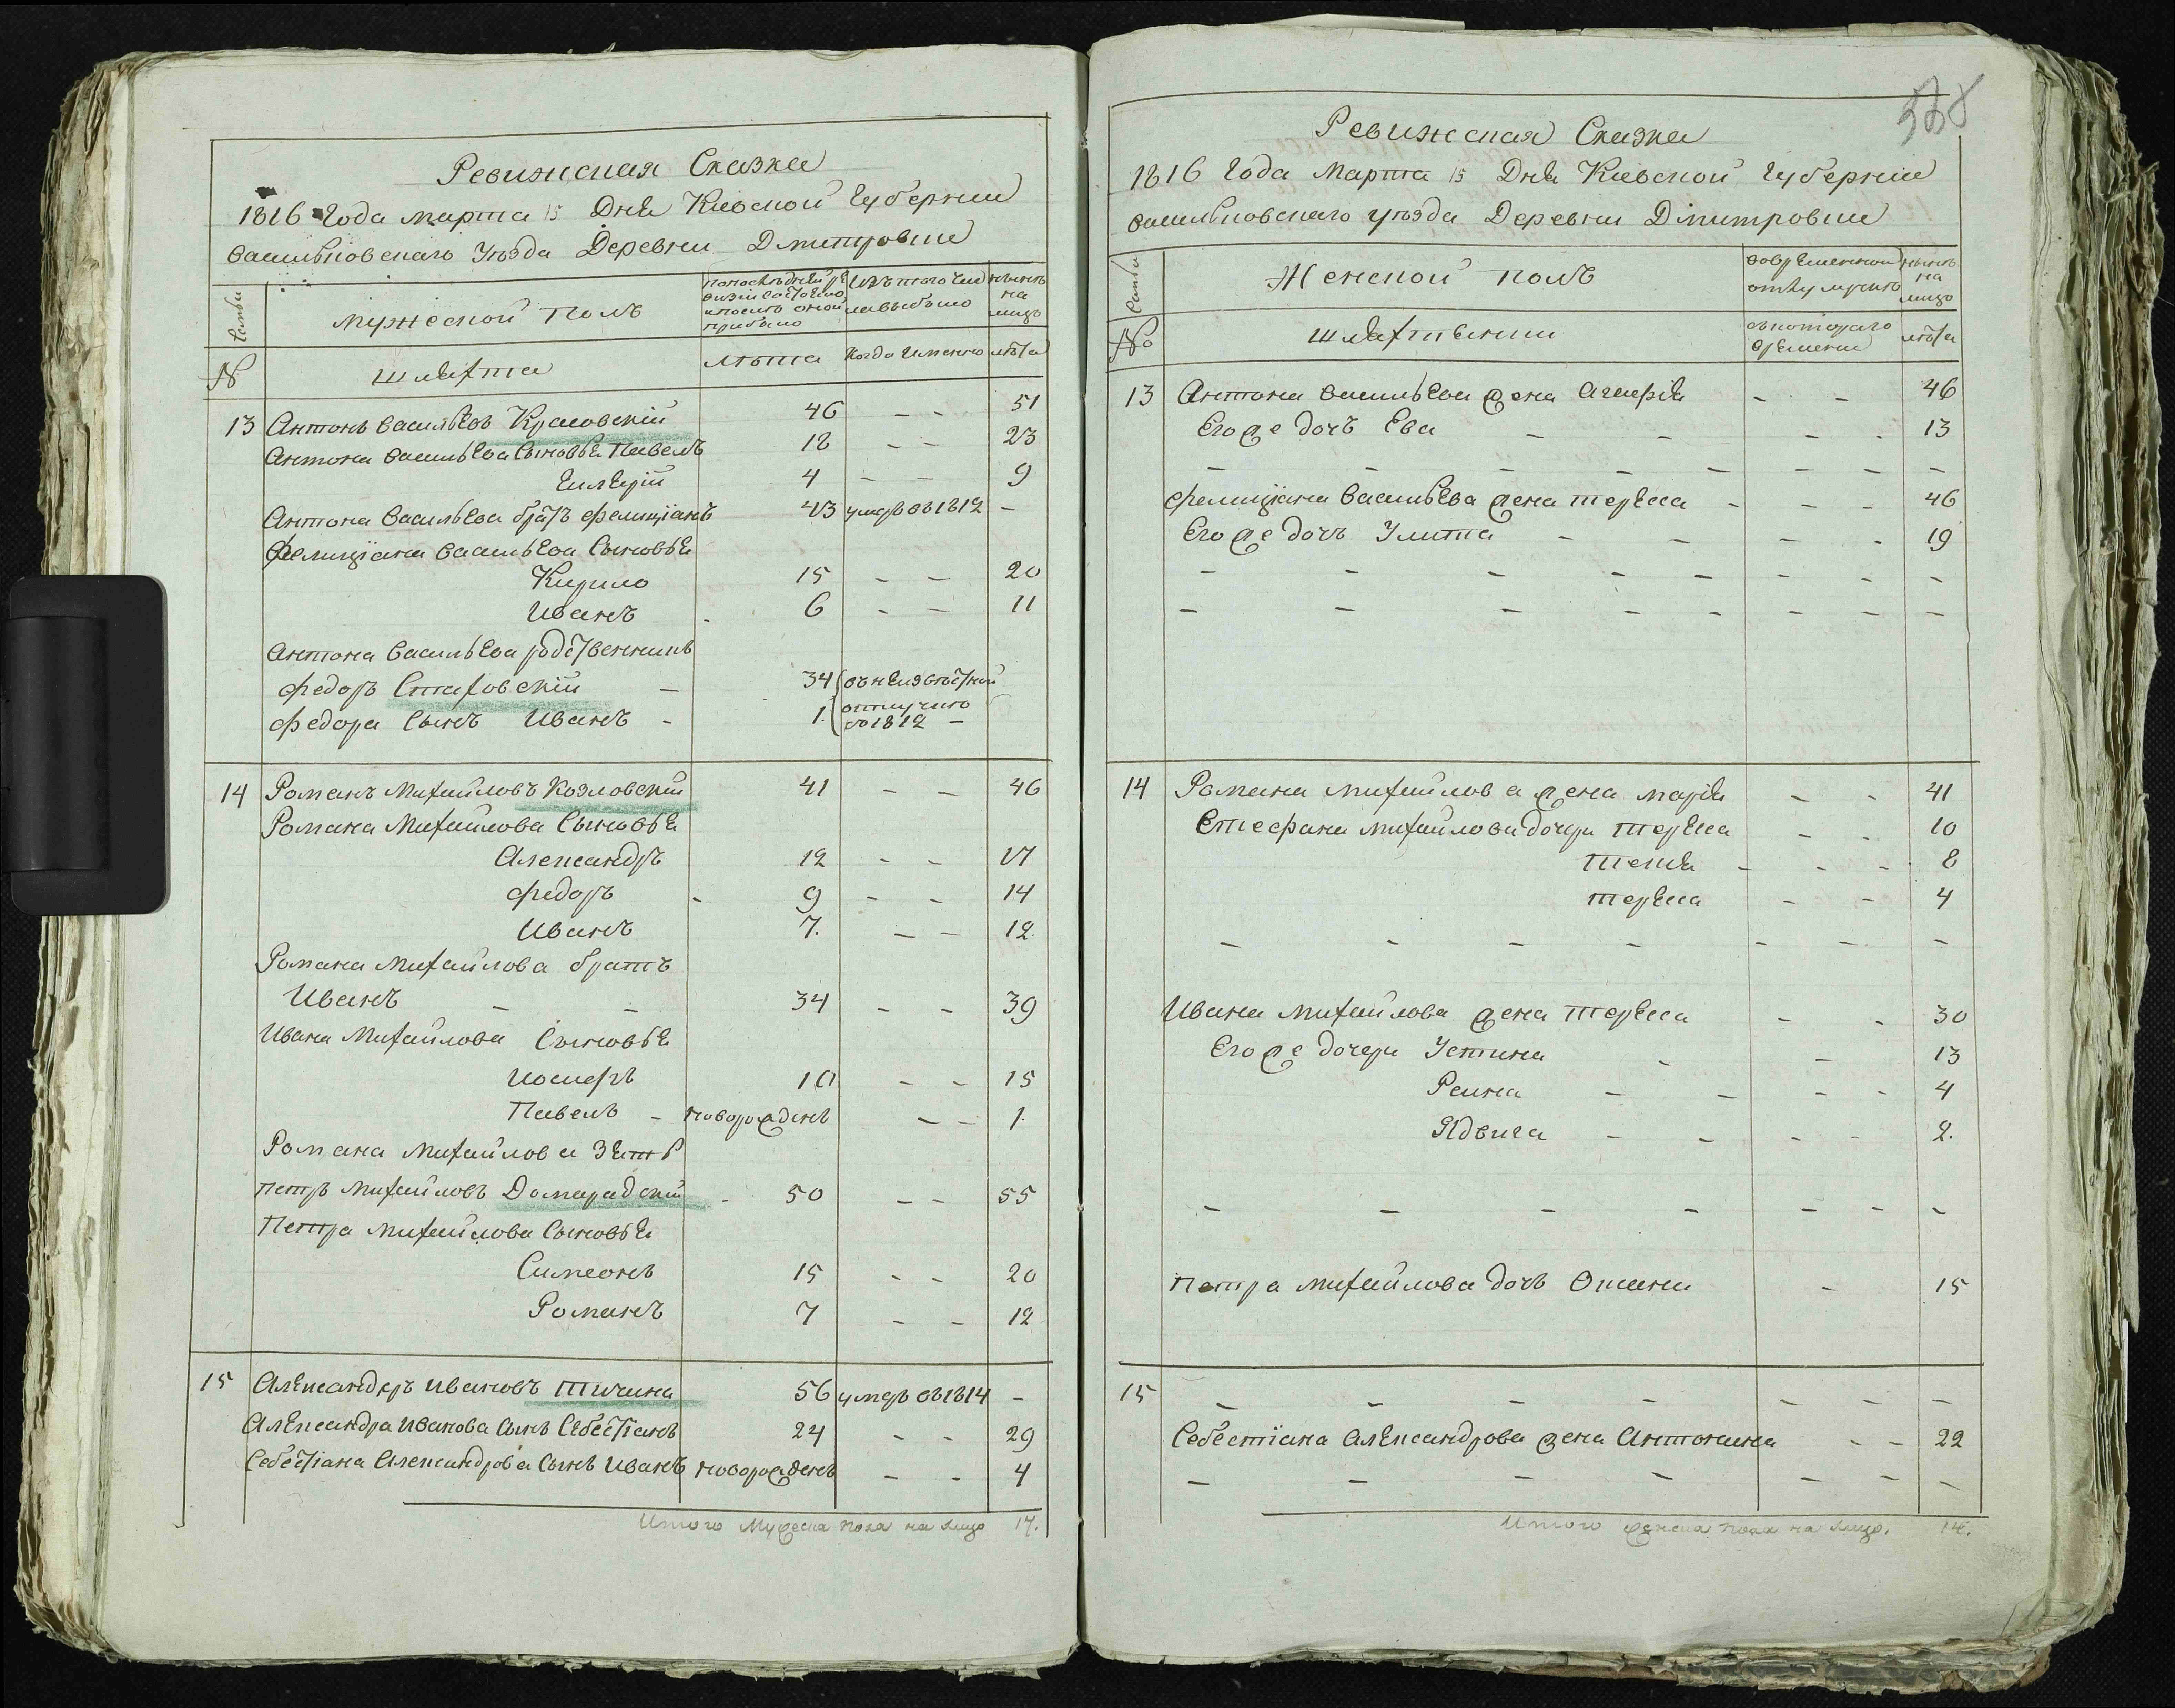 Ревижская Сказка
1816 Года марта 15 Дня Киевской Губернии
васильковскаго Уѣзда Деревни Дмитровки
Семьи
мужеской полъ
попослѣдней ре
визии состояло
и послѣ оной
прибыло
Изъ того чи
ла выбыло
нынѣ
на
лицо
№
шляхта
лѣта
Когда имянно
лѣта
13 Антонъ васильевъ Красовский 46 - - 51
Антона васильева сыновья Павелъ 18 - - 23
4 - - 9
Антона васильева братъ Фелициянъ 43 умеръ въ 1812 -
Фелицияна васильева сыновья
Кирило 15 - - 20
Иванъ - 6 - - 11
Антона васильева родственникъ
Федоръ Стаховский - 34 въ неизвѣстной
Федора сынъ Иванъ - 1. отлучкѣ
съ 1812 -
14 Романъ Михайловъ Козловский 41 - - 46
Романа Михайлова Сыновья
Александръ 12 - - 17
Федоръ - 9 - - 14
Иванъ 7. - - 12.
Романа Михайлова братъ
Иванъ - - 34 - - 39
Ивана Михайлова Сыновья
Иосифъ 10 - - 15
Павелъ - новорожденъ - - 1.
Романа Михайлова Зять
петръ михайловъ Домарадский - 50 - - 55
Петра михайлова Сыновья
Симеонъ 15 - - 20
Романъ 7 - - 12
15 Александеръ ивановъ 56 умеръ въ 1814 -
Александра иванова сынъ Себестіанъ 24 - - 29
Себестіана Александрова сынъ Иванъ новорожденъ - - 4
Итого Мужеска пола на лицо 17.
538
Ревижская Сказка
1816 Года Марта 15 Дня Киевской Губернии
васильковскаго уѣзда Деревни Дмитровки
Семьи
Женской полъ
во временной
отлучкѣ
нынѣ
на
лицо
№
съ котораго
времени
лѣта
13 Антона васильева жена Агафія - - 46
Его же дочь Ева - - - - 13
- - - - - - - -
Фелицияна Васильева жена тереса - - - 46
Его же дочь Улита - - - - 19
- - - - - - - -
- - - - - - - -
14 Романа михайлова жена марія - - 41
Стефана михайлова дочери тереса - - 10
Текля - - - 8
тереса - - 4
- - - - - - -
Ивана михайлова жена Тереса - - 30
Его же дочери Устина - - 13
Реина - - - - 4
Ядвига - - - - 2.
- - - - - - -
петра михайлова дочь - 15
15 - - - - - - -
Себестіана Александрова жена Антонина - - 22
- - - - - - -
Итого женска пола на лицо. 14.